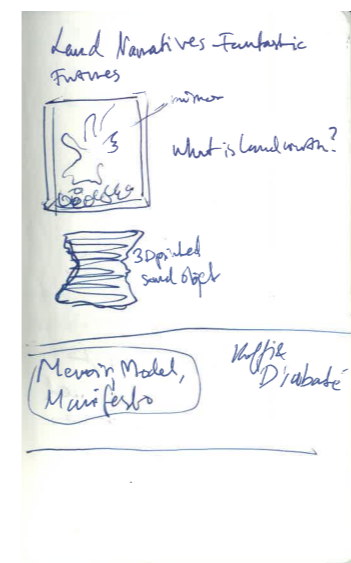 Land Narratives - Fantastic
Futures
mirror
What is land worth?
3D printed
sand object
Memoir, Model,
Manifesto
Koffi &
Diabaté